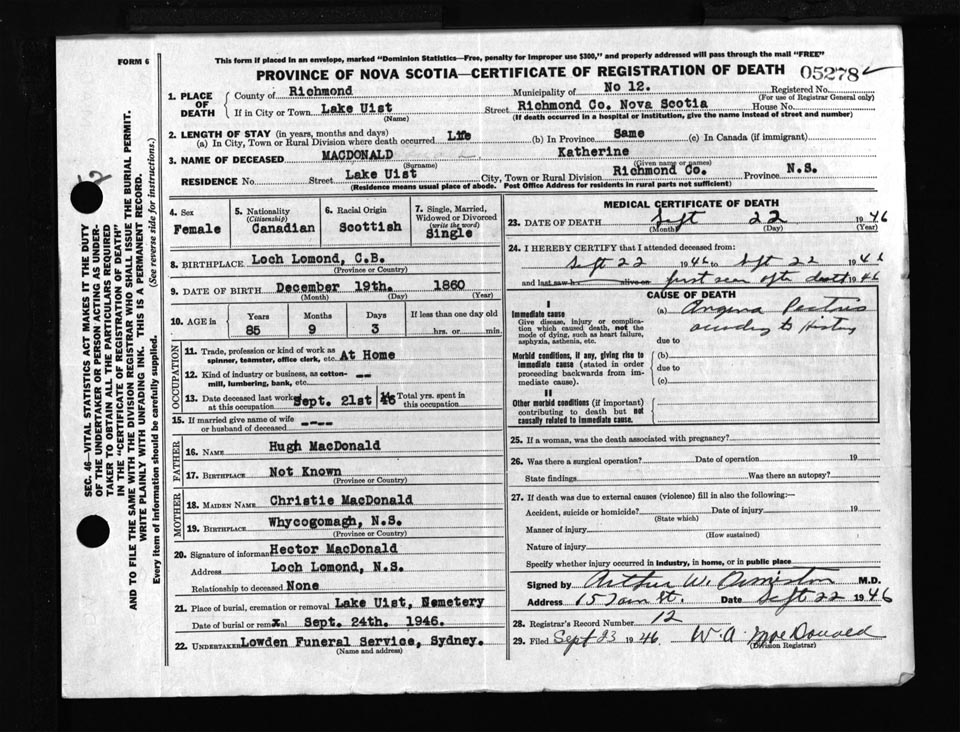 FORM 6
This form if placed in an envelope, marked "Dominion Statistics—Free, penalty for improper use $300," and properly addressed will pass through the mail "FREE"
PROVINCE OF NOVA SCOTIA—CERTIFICATE OF REGISTRATION OF DEATH 05278
1. PLACE OF DEATH
County of Richmond Municipality of No 12. Registered No.
(For use of Registrar General only)
If in City or Town Lake Uist Street Richmond Co. Nova Scotia House No.
(Name) (If death occurred in a hospital or institution, give the name instead of street and number)
2. LENGTH OF STAY (in years, months and days)
(a) In City, Town or Rural Division where death occurred Life (b) In Province Same (c) In Canada (if immigrant)
3. NAME OF DECEASED MACDONALD Katherine
(Surname) (Given name or names)
RESIDENCE No. Street Lake Uist City, Town or Rural Division Richmond Co. Province N.S.
(Residence means usual place of abode. Post Office Address for residents in rural parts not sufficient)
4. Sex Female
5. Nationality (Citizenship) Canadian
6. Racial Origin Scottish
7. Single, Married, Widowed or Divorced (write the word) Single
8. BIRTHPLACE Loch Lomond, C.B.
(Province or Country)
9. DATE OF BIRTH December 19th. 1860
(Month) (Day) (Year)
10. AGE in Years Months Days If less than one day old
85 9 3 hrs. or min.
OCCUPATION
11. Trade, profession or kind of work as spinner, teamster, office clerk, etc. At Home
12. Kind of industry or business, as cotton-mill, lumbering, bank, etc. --
13. Date deceased last worked at this occupation Sept. 21st 46 Total yrs. spent in this occupation
15. If married give name of wife or husband of deceased ----
FATHER
16. NAME Hugh MacDonald
17. BIRTHPLACE Not Known
MOTHER
18. MAIDEN NAME Christie MacDonald
19. BIRTHPLACE Whycogomagh, N.S.
(Province or Country)
20. Signature of informant Hector MacDonald
Address Loch Lomond, N.S.
Relationship to deceased None
21. Place of burial, cremation or removal Lake Uist, Nemetery
Date of burial or removal Sept. 24th. 1946.
22. UNDERTAKER Lowden Funeral Service, Sydney.
(Name and address)
MEDICAL CERTIFICATE OF DEATH
23. DATE OF DEATH Sept 22 1946
(Month) (Day) (Year)
24. I HEREBY CERTIFY that I attended deceased from:
Sept 22 1946 to Sept 22 1946
and last saw h alive on first seen after death 1946
CAUSE OF DEATH
I
Immediate cause
Give disease, injury or complication which caused death, not the mode of dying, such as heart failure, asphyxia, asthenia, etc.
(a) Angina Pectoris
according to History
due to
Morbid conditions, if any, giving rise to immediate cause (stated in order proceeding backwards from immediate cause).
(b)
due to
(c)
II
Other morbid conditions (if important) contributing to death but not causally related to immediate cause.
25. If a woman, was the death associated with pregnancy?
26. Was there a surgical operation? Date of operation 19
State findings Was there an autopsy?
27. If death was due to external causes (violence) fill in also the following:—
Accident, suicide or homicide? Date of injury 19
(State which)
Manner of injury
(How sustained)
Nature of injury
Specify whether injury occurred in industry, in home, or in public place
Signed by Arthur W. Ormiston M.D.
Address 15 Town St. Date Sept 22 1946
28. Registrar's Record Number 12
29. Filed Sept 23 1946 W.A. MacDonald
(Division Registrar)
SEC. 46—VITAL STATISTICS ACT MAKES IT THE DUTY
OF THE UNDERTAKER OR PERSON ACTING AS UNDER-
TAKER TO OBTAIN ALL THE PARTICULARS REQUIRED
IN THE "CERTIFICATE OF REGISTRATION OF DEATH"
AND TO FILE THE SAME WITH THE DIVISION REGISTRAR WHO SHALL ISSUE THE BURIAL PERMIT.
WRITE PLAINLY WITH UNFADING INK. THIS IS A PERMANENT RECORD.
Every item of information should be carefully supplied. (See reverse side for instructions.)